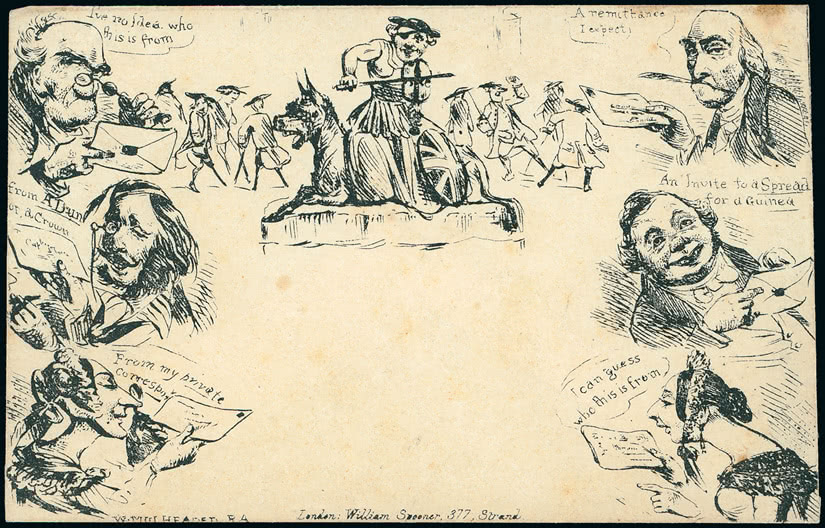 I've no Idea who
this is from
A remittance
I expect,
from A Dun
for a Crown
An Invite to a Spread
for a Guinea
From my private
correspon
I can guess
who this is from
W. MULHEADED, RA
London: William Spooner, 377, Strand.